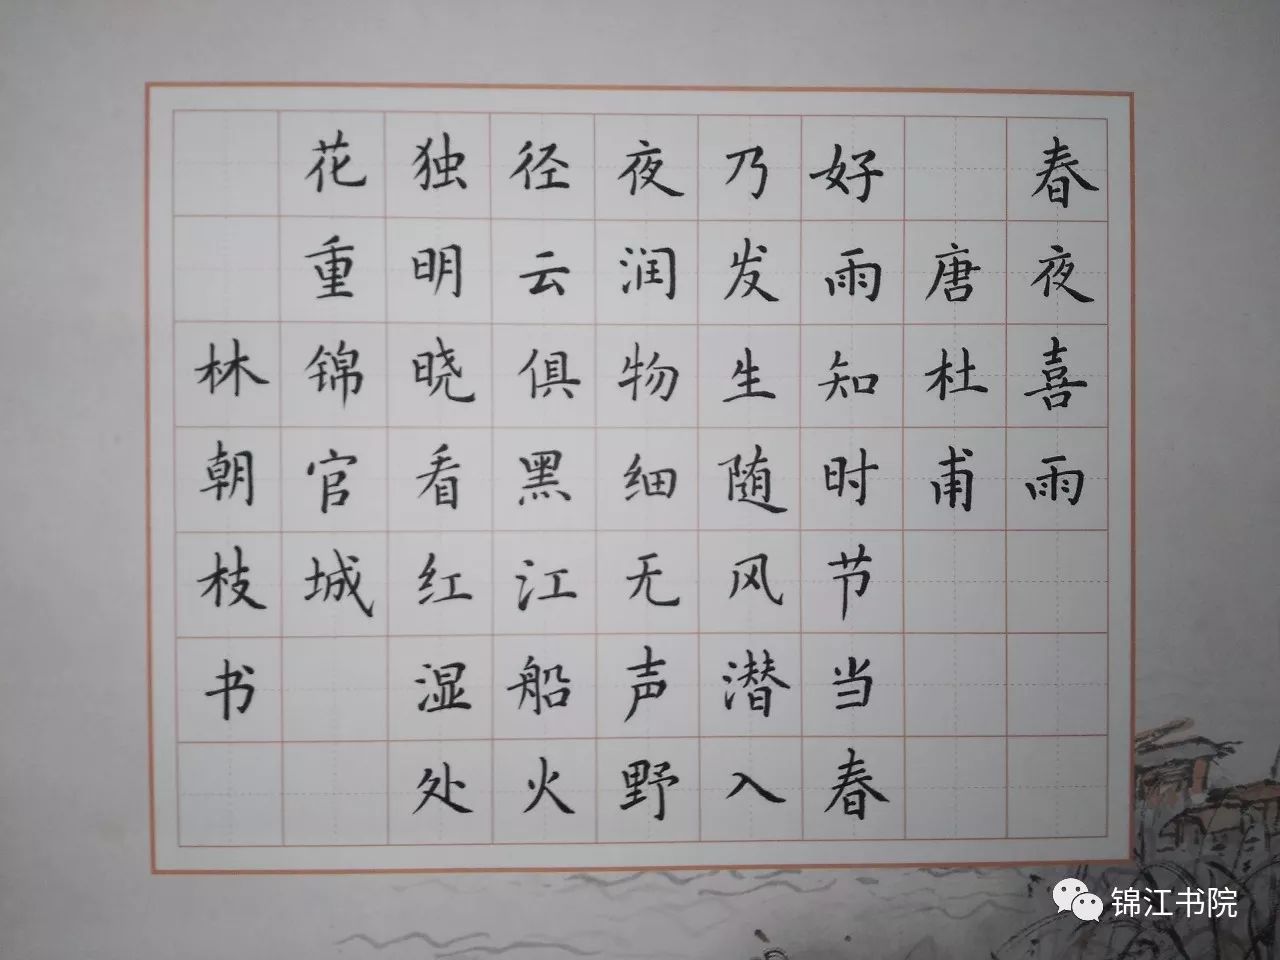 春夜喜雨
唐杜甫
好雨知时节当春
乃发生随风潜入
夜润物细无声野
径云俱黑江船火
独明晓看红湿处
花重锦官城
林朝枝书
锦江书院